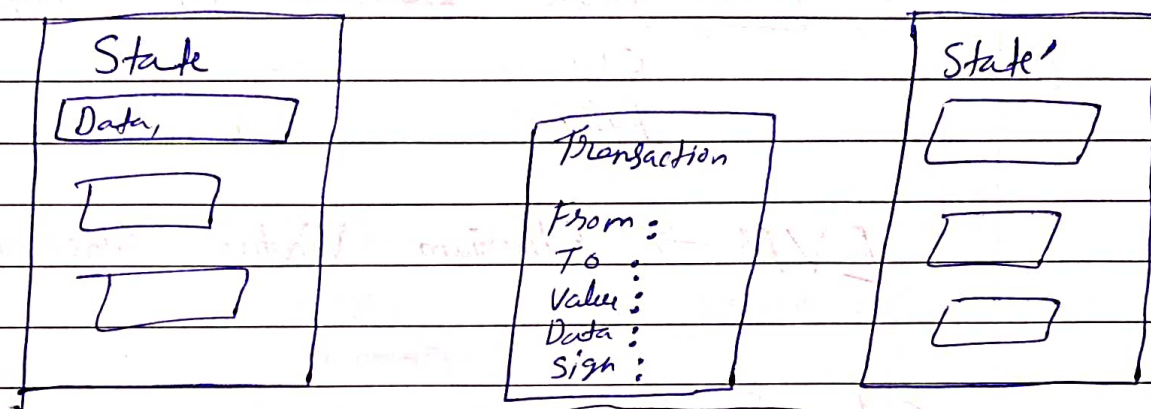 State
Data,
Transaction
From :
To :
Value :
Data :
Sign :
State'